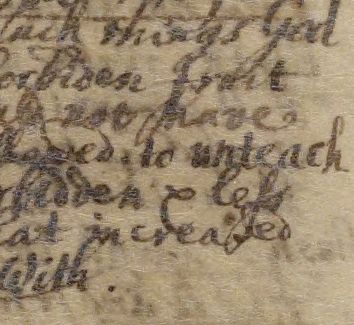 such things God
forbiden fruit
not have
to unteach
hidden & left
at increased
With .